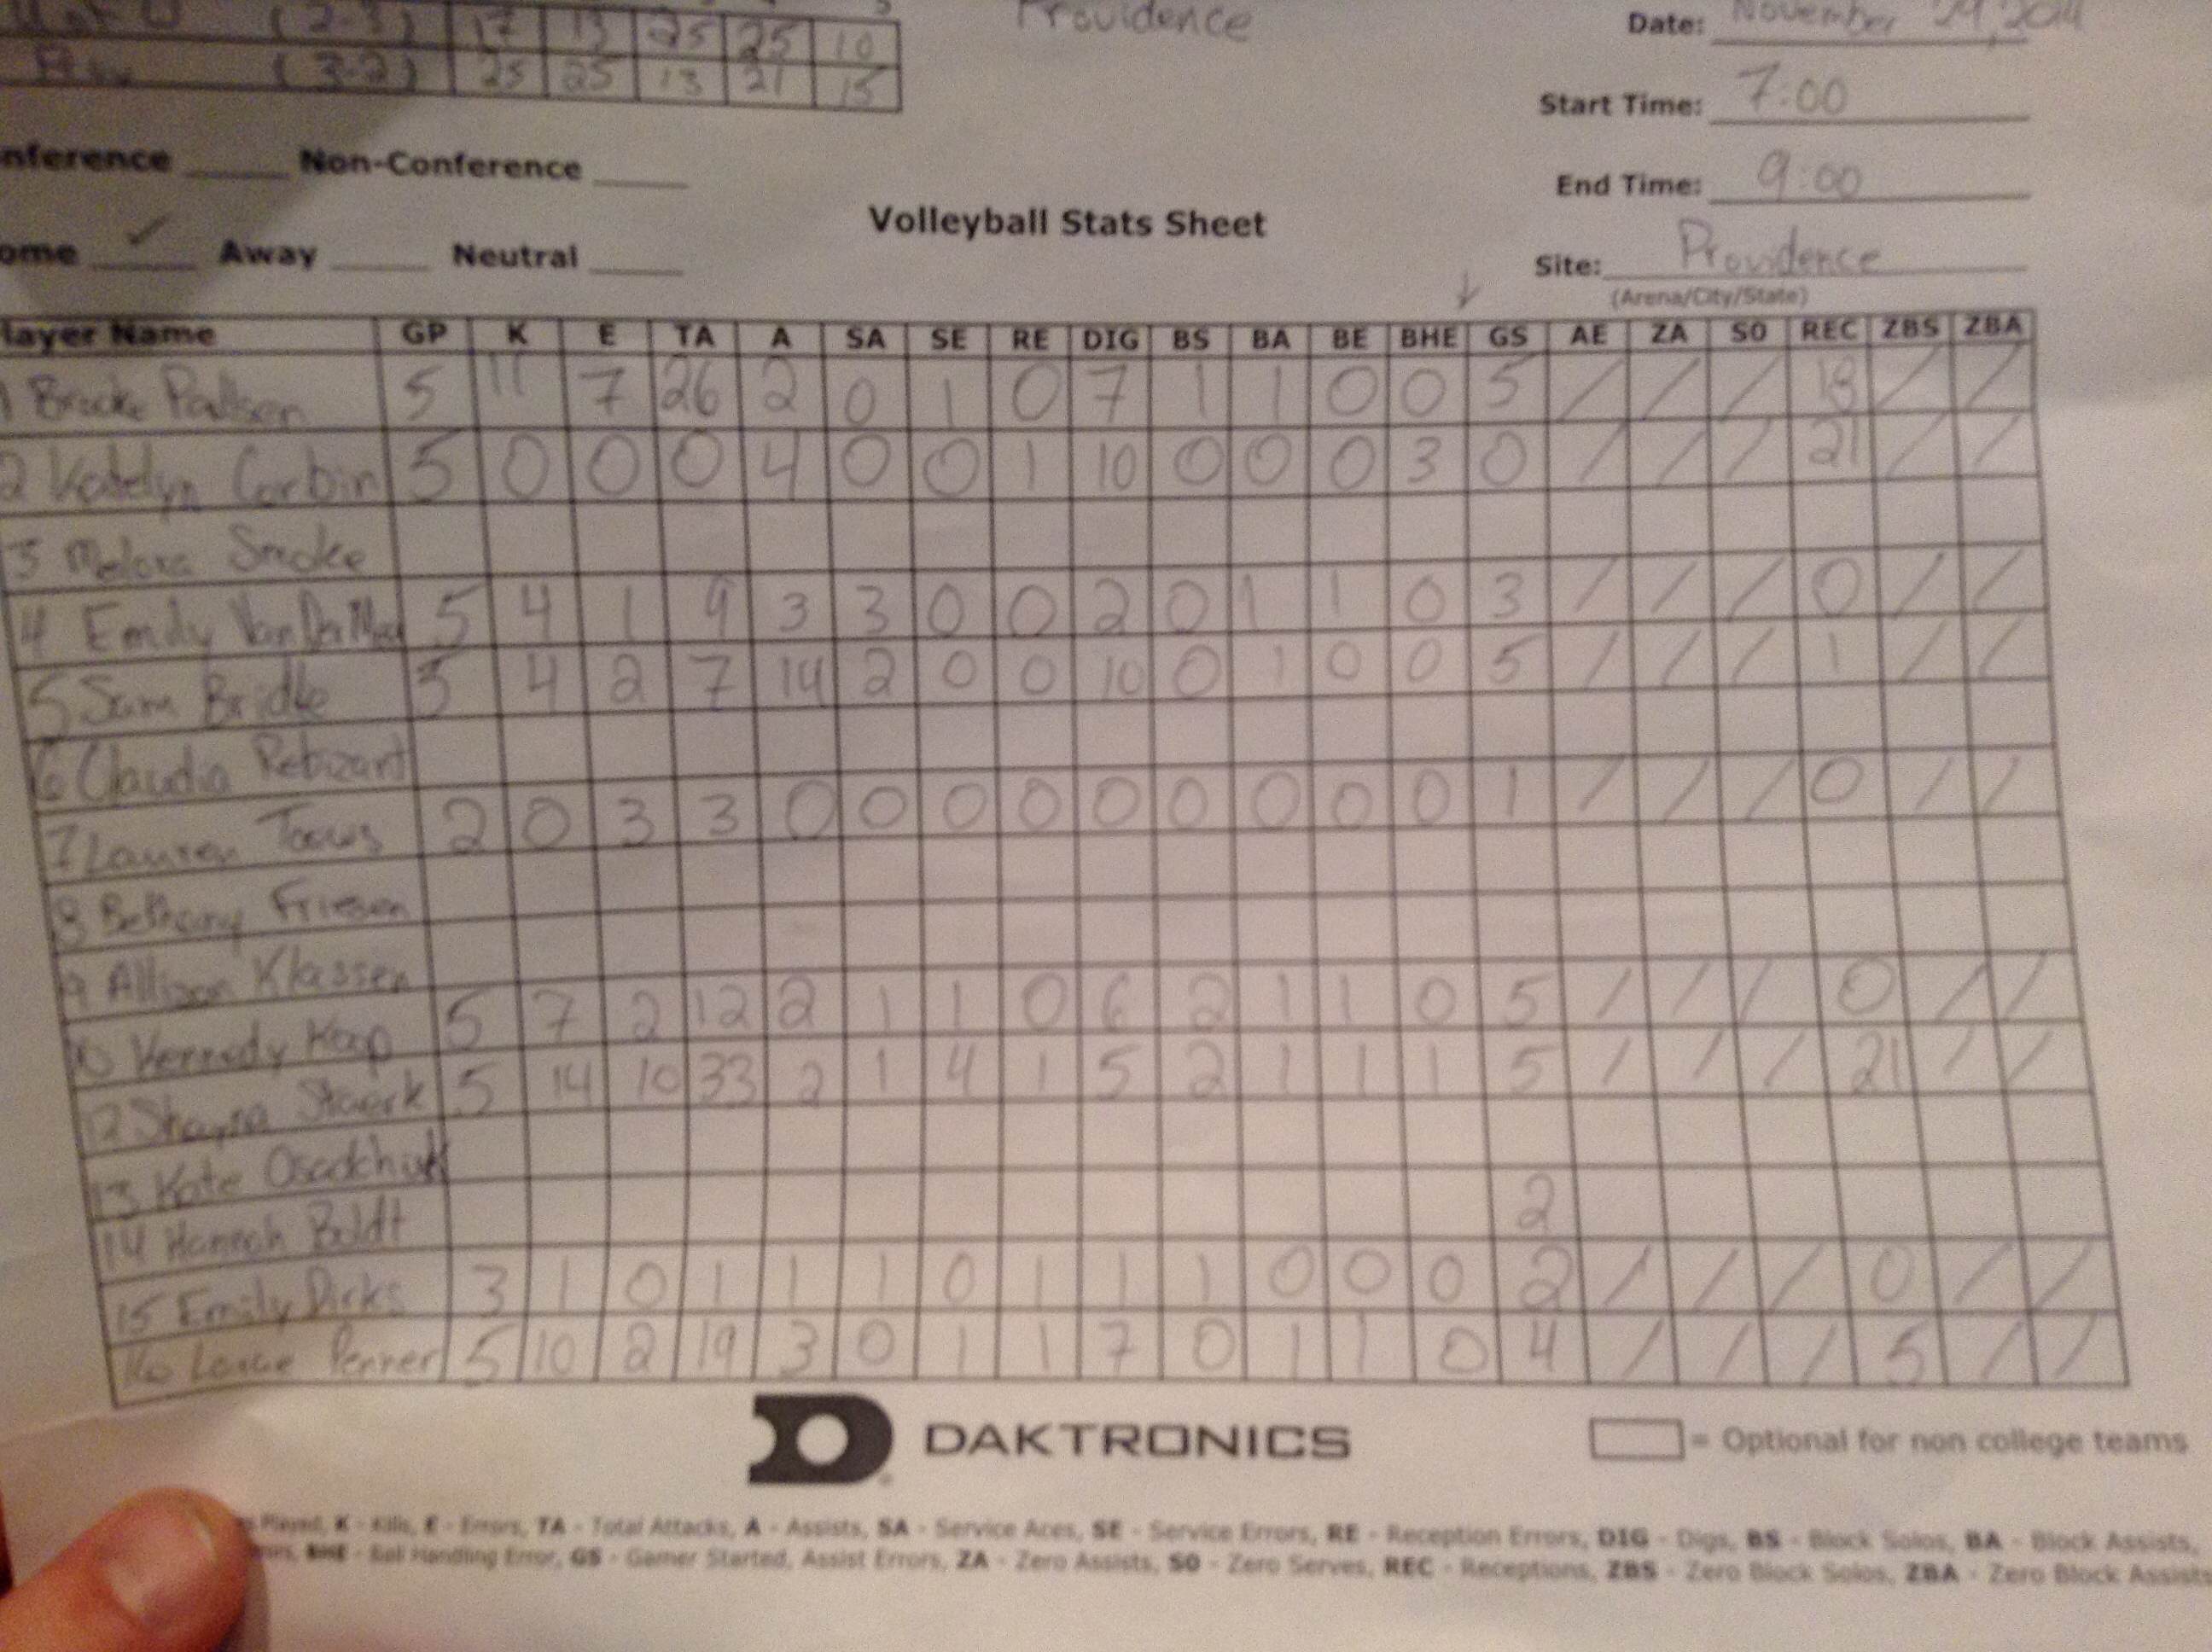 (2-3) 17 13 25 25 10
Providence
Date: November 29, 2014
(3-2) 25 25 13 21 15
Start Time: 7:00
nference Non-Conference
End Time: 9:00
Volleyball Stats Sheet
ome ✓ Away Neutral
Site: Providence
(Arena/City/State)
layer Name GP K E TA A SA SE RE DIG BS BA BE BHE GS AE ZA SO REC ZBS ZBA
1 Brooke Paulsen 5 11 7 26 2 0 1 0 7 1 1 0 0 5 / / / 18 / /
2 Katelyn Corbin 5 0 0 0 4 0 0 1 10 0 0 0 3 0 / / / 21 / /
3 Smoke
4 Emily 5 4 1 9 3 3 0 0 2 0 1 1 0 3 / / / 0 / /
5 Sam Bridle 5 4 2 7 14 2 0 0 10 0 1 0 0 5 / / / 1 / /
6 Claudia Rebizant
7 Lauren Toews 2 0 3 3 0 0 0 0 0 0 0 0 0 1 / / / 0 / /
8 Bethany Friesen
9 Allison Klassen
10 Kennedy Koop 5 7 2 12 2 1 1 0 6 2 1 1 0 5 / / / 0 / /
12 Shayna Staerk 5 14 10 33 2 1 4 1 5 2 1 1 1 5 / / / 21 / /
13 Kate Osadchuk
14 Hannah Boldt 2
15 Emily Dirks 3 1 0 1 1 1 0 1 1 1 0 0 0 2 / / / 0 / /
16 Penner 5 10 2 19 3 0 1 1 7 0 1 1 0 4 / / / 5 / /
DAKTRONICS
= Optional for non college teams
Played, K - Kills, E - Errors, TA - Total Attacks, A - Assists, SA - Service Aces, SE - Service Errors, RE - Reception Errors, DIG - Digs, BS - Block Solos, BA - Block Assists,
BHE - Ball Handling Error, GS - Gamer Started, Assist Errors, ZA - Zero Assists, SO - Zero Serves, REC - Receptions, ZBS - Zero Block Solos, ZBA - Zero Block Assists